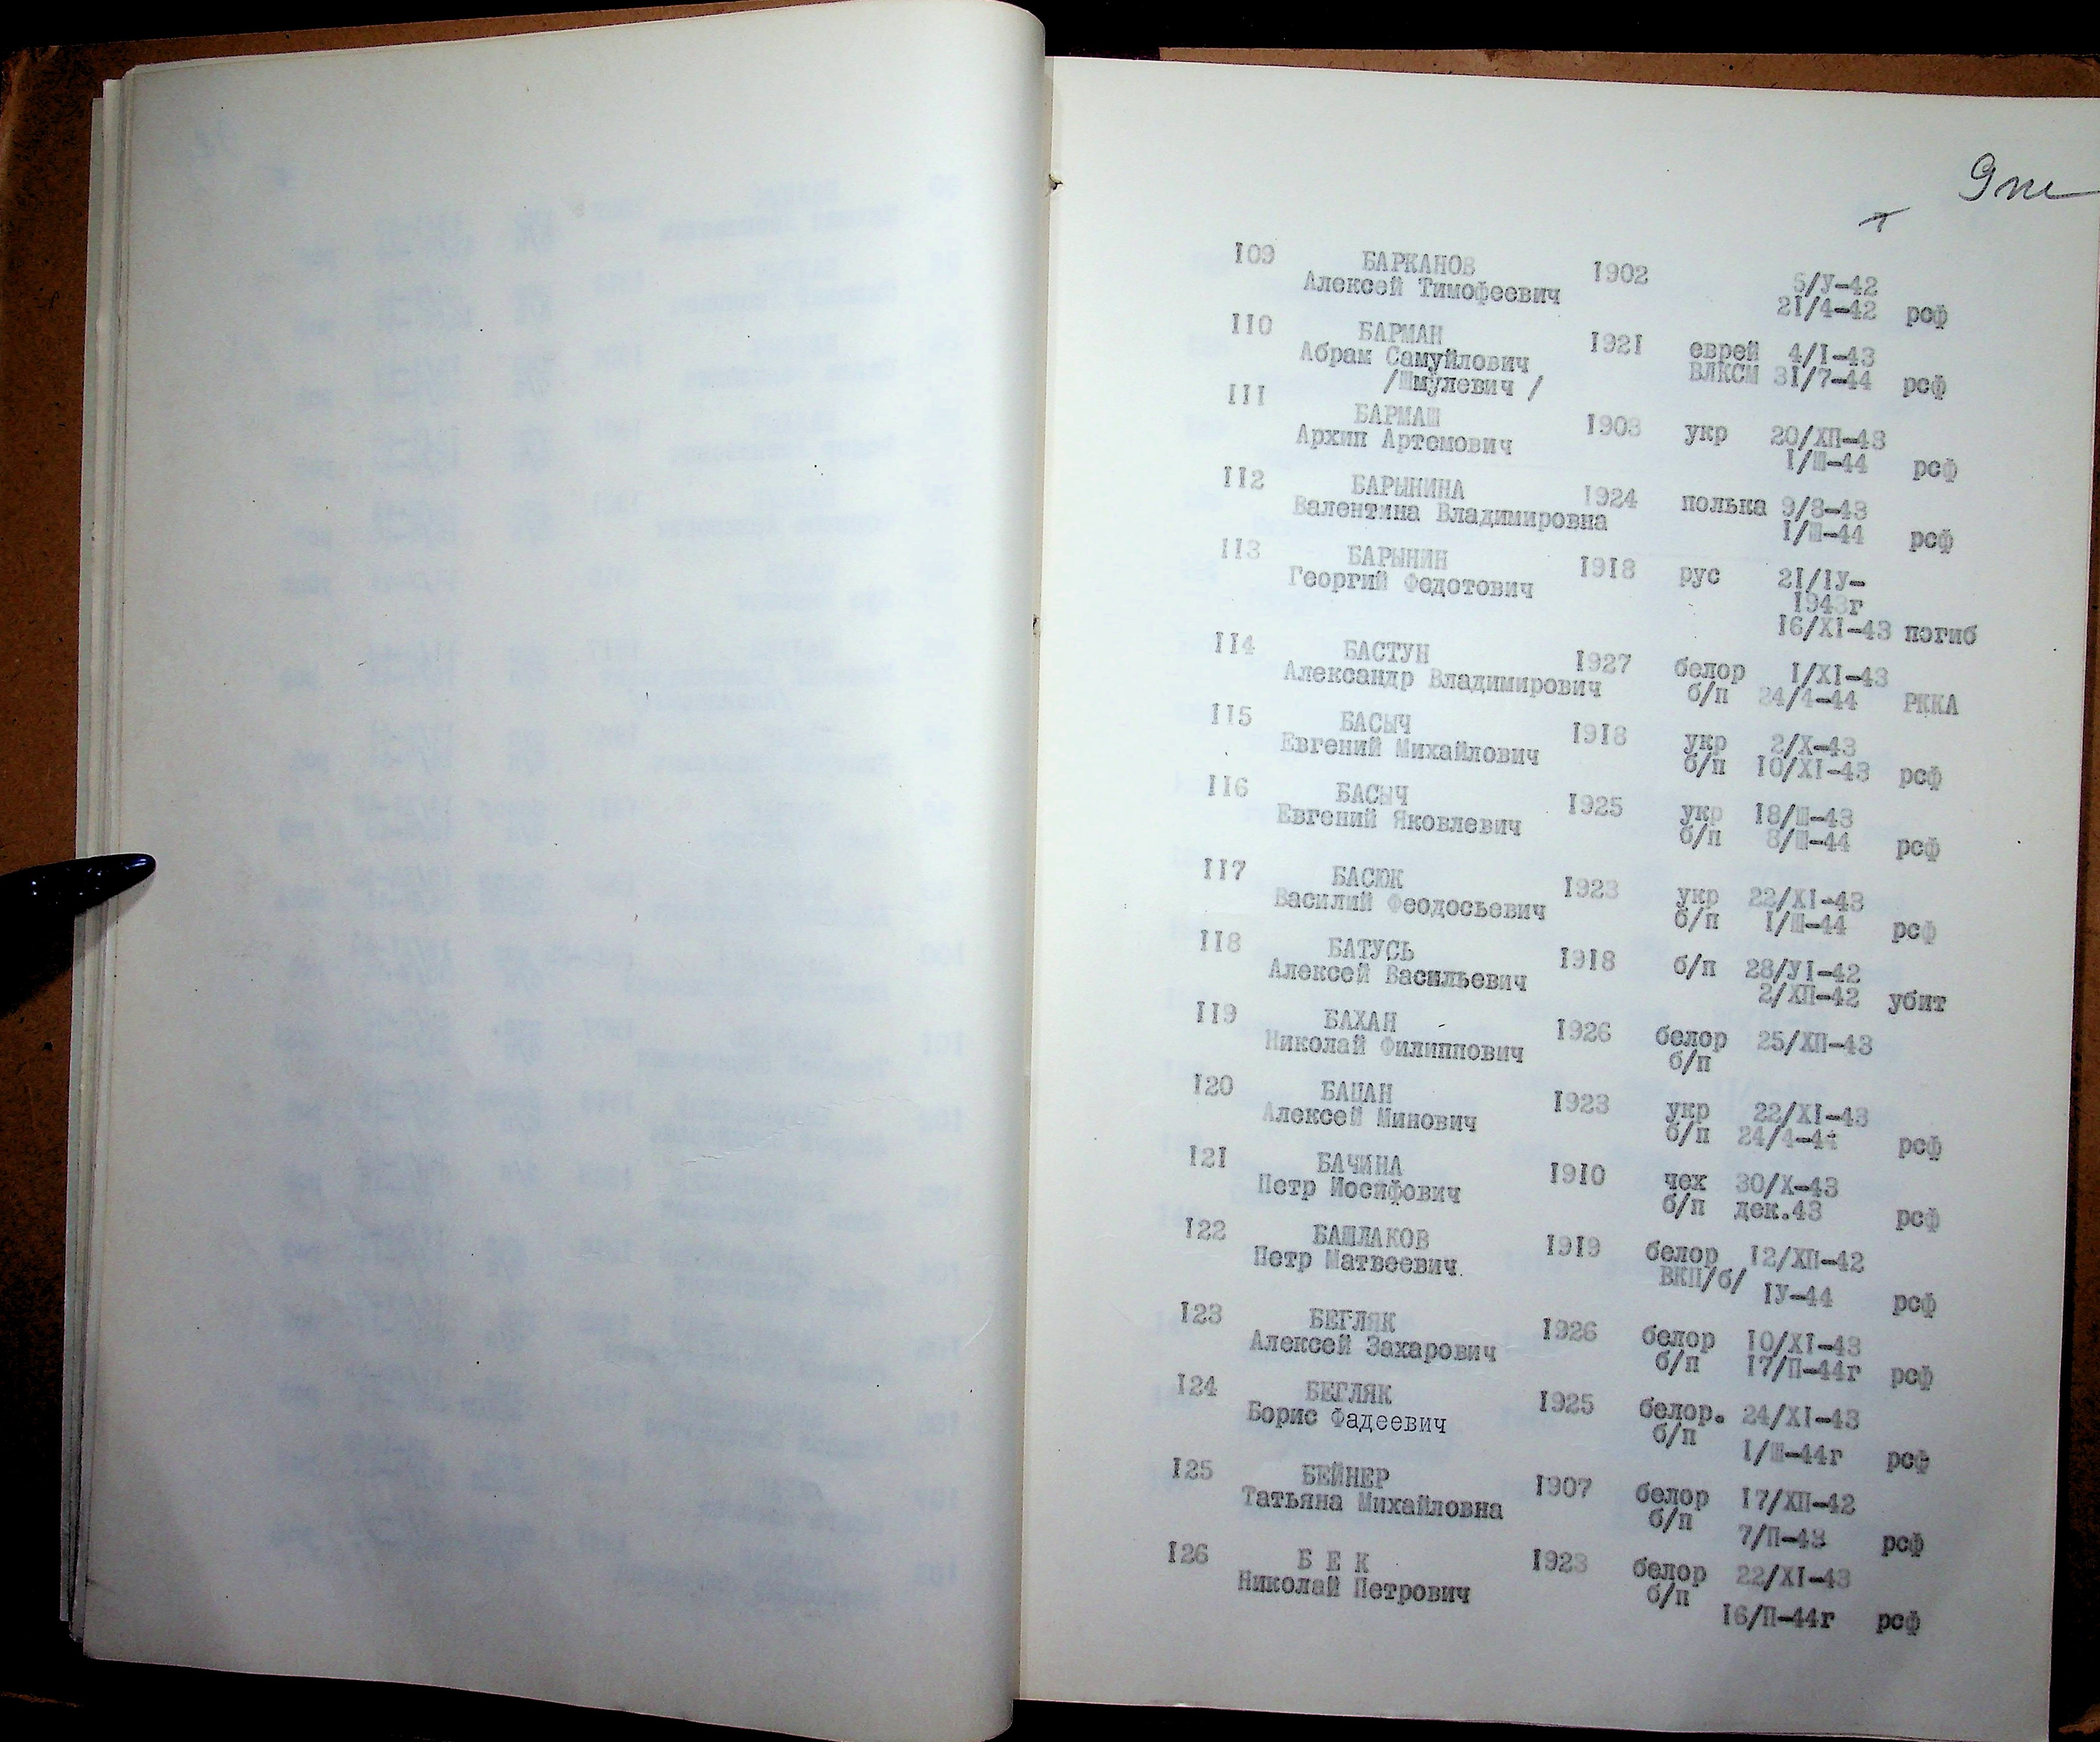 9
109 БАРКАНОВ 1902 5/У-42
Алексей Тимофеевич 21/4-42 рсф
110 БАРМАН 1921 еврей 4/I-43
Абрам Самуйлович ВЛКСМ 31/7-44 рсф
/Шмулевич /
111 БАРМАШ 1903 укр 20/ХП-43
Архип Артемович 1/Ш-44 рсф
112 БАРЫНИНА 1924 полька 9/8-43
Валентина Владимировна 1/Ш-44 рсф
113 БАРЫНИН 1918 рус 21/1У-
Георгий Федотович 1943г
16/XI-43 погиб
114 БАСТУН 1927 белор 1/XI-43
Александр Владимирович б/п 24/4-44 РККА
115 БАСЫЧ 1918 укр 2/Х-43
Евгений Михайлович б/п 10/XI-43 рсф
116 БАСЫЧ 1925 укр 18/Ш-43
Евгений Яковлевич б/п 8/Ш-44 рсф
117 БАСЮК 1923 укр 22/XI-43
Василий Феодосьевич б/п 1/Ш-44 рсф
118 БАТУСЬ 1918 б/п 28/У1-42
Алексей Васильевич 2/ХП-42 убит
119 БАХАН 1926 белор 25/ХП-43
Николай Филиппович б/п
120 БАЦАН 1923 укр 22/XI-43
Алексей Минович б/п 24/4-44 рсф
121 БАЧИНА 1910 чех 30/Х-43
Петр Иосифович б/п дек.43 рсф
122 БАШЛАКОВ 1919 белор 12/ХП-42
Петр Матвеевич ВКП/б/ 1У-44 рсф
123 БЕГЛЯК 1926 белор 10/XI-43
Алексей Захарович б/п 17/П-44г рсф
124 БЕГЛЯК 1925 белор. 24/XI-43
Борис Фадеевич б/п 1/Ш-44г рсф
125 БЕЙНЕР 1907 белор 17/ХП-42
Татьяна Михайловна б/п 7/П-43 рсф
126 Б Е К 1923 белор 22/XI-43
Николай Петрович б/п 16/П-44г рсф